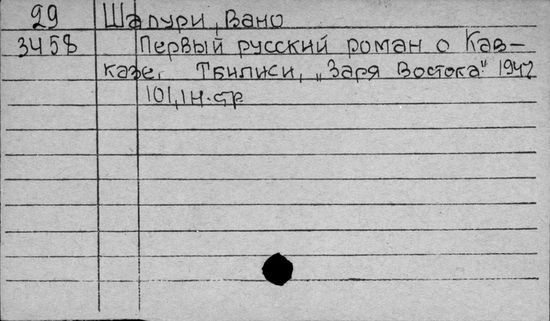 29 Шадури, Вано
3458 Первый русский роман о Кав-
казе. Тбилиси, „Заря Востока" 1947
101, 1 н. стр